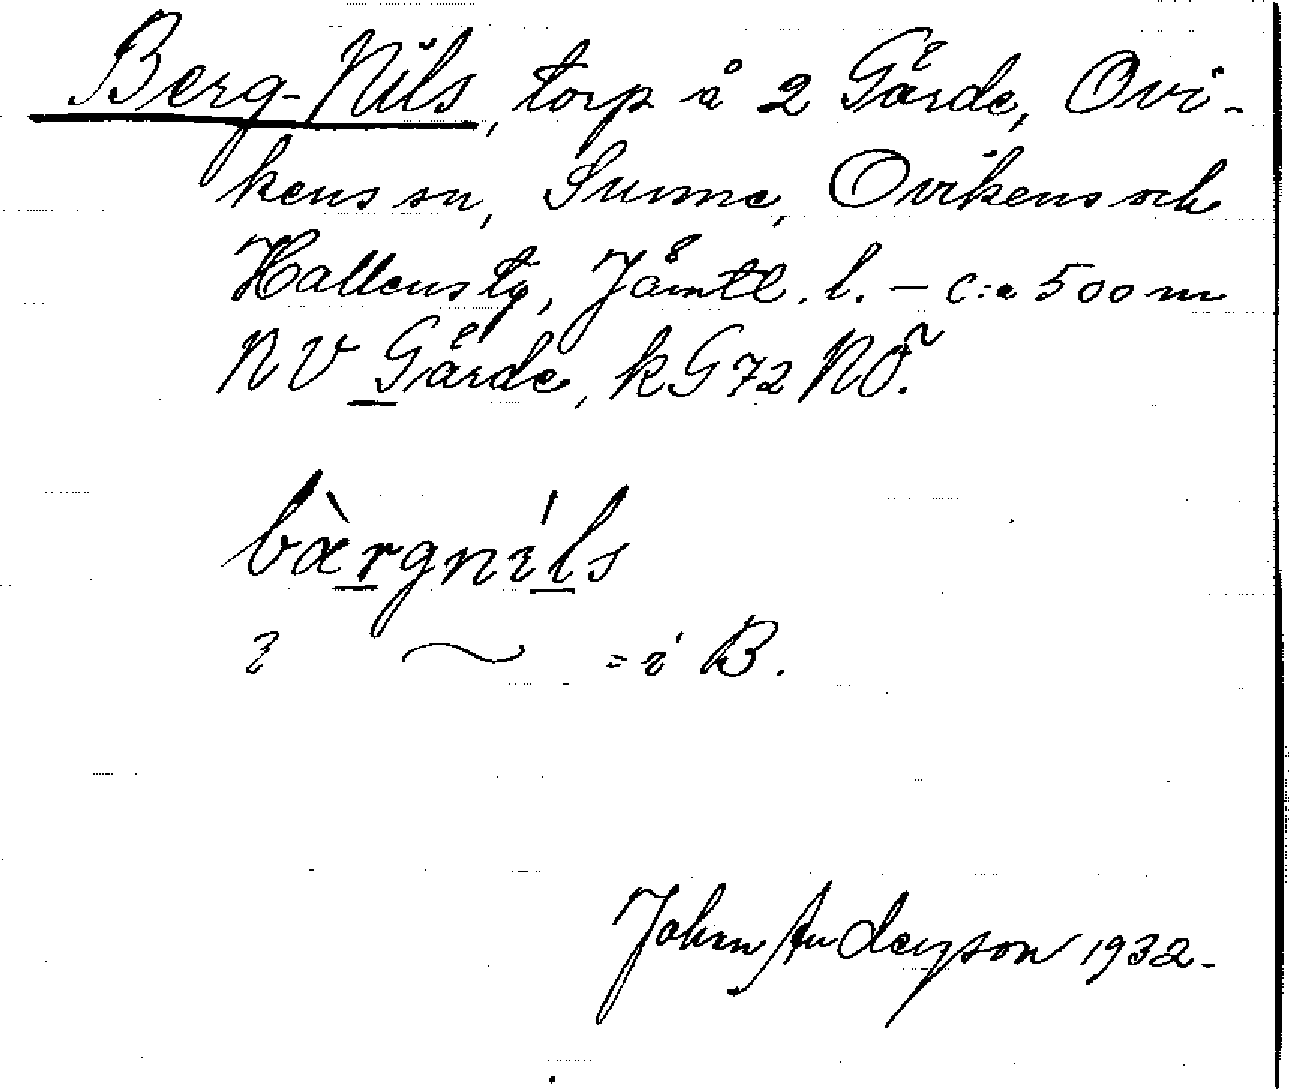 Berg-Nils, torp å 2 Gärde, Ovi-
kens sn, Sunne, Oviken och
Hallens tg, Jämtl. l. – c:a 500 m
NV Gärde, k G 72 NÖ.
bàrgníls
i ~ = i B.
John Andersson 1932.